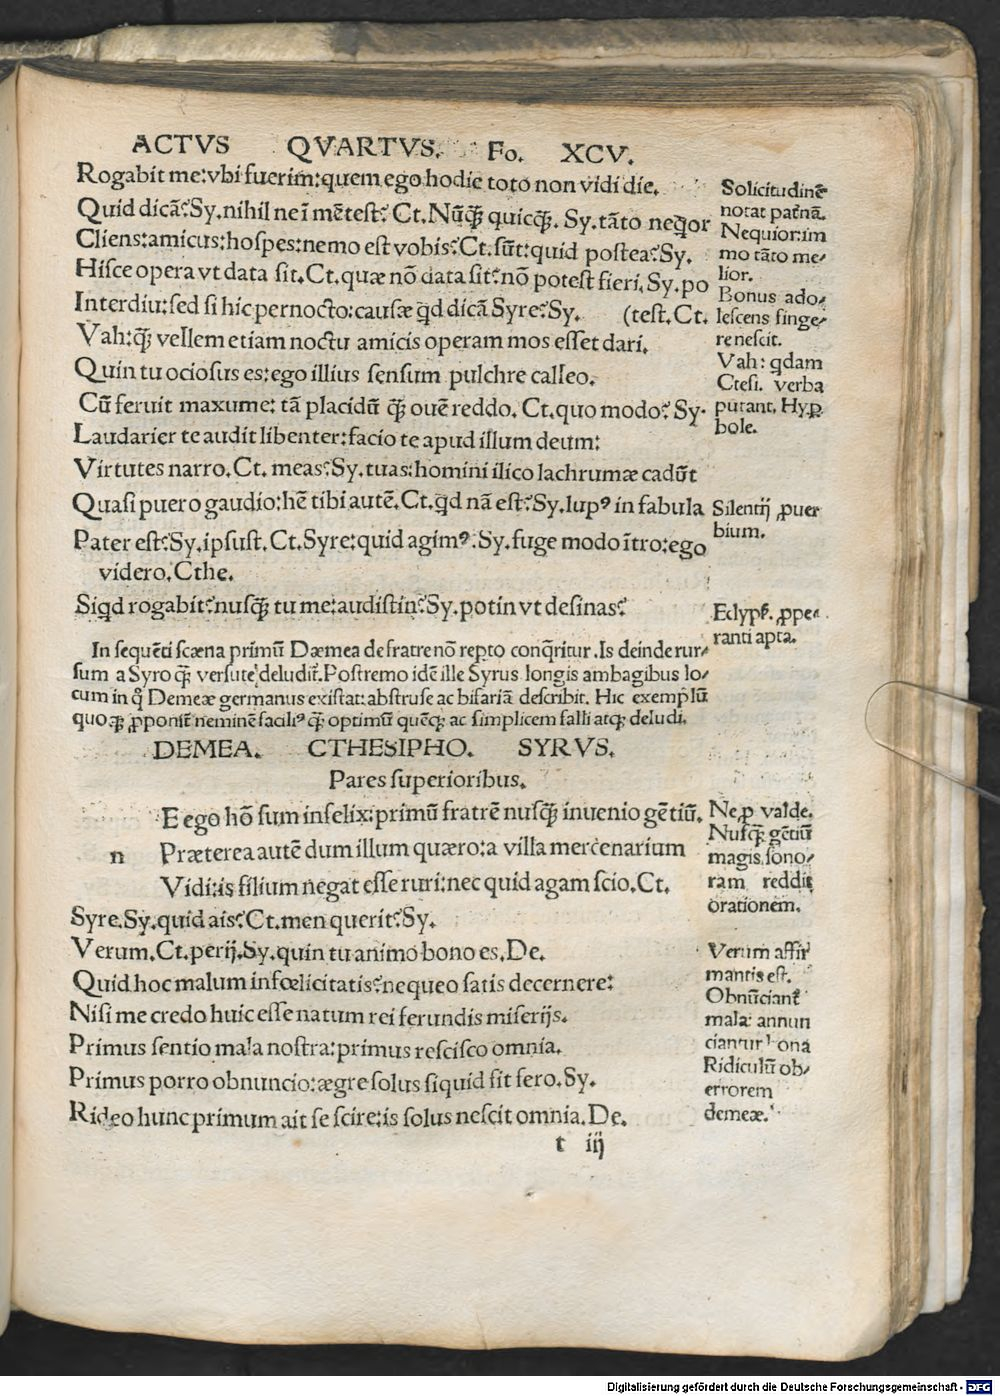 ACTVS QVARTVS. Fo. XCV.
Rogabit me:vbi fuerim:quem ego hodie toto non vidi die.
Quid dicã?Sy.nihil ne ĩ mẽtest? Ct.Nũq̃ quicq̃. Sy.tãto neq̃or
Cliens:amicus:hospes:nemo est vobis?Ct.sũt:quid postea?Sy.
Hisce opera vt data sit.Ct.quæ nõ data sit?nõ potest fieri.Sy.po
Interdiu:sed si hic pernocto:causæ qd dicã Syre?Sy. (test.Ct.
Vah:q̃ vellem etiam noctu amicis operam mos esset dari.
Quin tu ociosus es:ego illius sensum pulchre calleo.
Cũ feruit maxume: tã placidũ q̃ ouẽ reddo. Ct.quo modo? Sy.
Laudarier te audit libenter:facio te apud illum deum:
Virtutes narro.Ct. meas?Sy.tuas:homini ilico lachrumæ cadũt
Quasi puero gaudio:hẽ tibi autẽ.Ct.qd nã est?Sy.lupꝰ in fabula
Pater est?Sy.ipsust.Ct.Syre:quid agimꝰ.Sy.fuge modo ĩtro:ego
videro.Cthe.
Siqd rogabit?nusq̃ tu me:audistin?Sy.potin vt desinas?
In sequẽti scæna primũ Dæmea de fratre nõ repto conq̃ritur.Is deinde rur-
sum a Syro q̃ versute deludit̃.Postremo idẽ ille Syrus longis ambagibus lo-
cum in q̊ Demeæ germanus existat:abstruse ac bifariã describit. Hic exemplũ
quoqꝫ ꝓponit̃:neminẽ faciliꝰ q̃ optimũ quẽqꝫ ac simplicem falli atqꝫ deludi.
DEMEA. CTHESIPHO. SYRVS.
Pares superioribus.
E ego hõ sum infelix:primũ fratrẽ nusq̃ inuenio gẽtiũ.
n Præterea autẽ dum illum quæro:a villa mercenarium
Vidi:is filium negat esse ruri:nec quid agam scio.Ct.
Syre.Sy.quid ais?Ct.men querit?Sy.
Verum.Ct.perij.Sy.quin tu animo bono es.De.
Quid hoc malum infœlicitatis?nequeo satis decernere:
Nisi me credo huic esse natum rei ferundis miserijs.
Primus sentio mala nostra:primus rescisco omnia.
Primus porro obnuncio:ægre solus siquid fit fero.Sy.
Rideo hunc primum ait se scire:is solus nescit omnia.De.
t iij
Solicitudinẽ
notat patnã.
Nequior:im
mo tãto me-
lior.
Bonus ado-
lescens finge-
re nescit.
Vah: qdam
Ctesi. verba
putant. Hyꝑ
bole.
Silentij ꝓuer
bium.
Eclyps̃. ꝓpe-
ranti apta.
Ne,ꝑ valde.
Nusq̃ gẽtiũ
magis.sono-
ram reddit
orationem.
Verum affir
mantis est.
Obnũciant̃
mala: annun
ciantur bona
Ridiculũ ob-
errorem
demeæ.
Digitalisierung gefördert durch die Deutsche Forschungsgemeinschaft - DFG